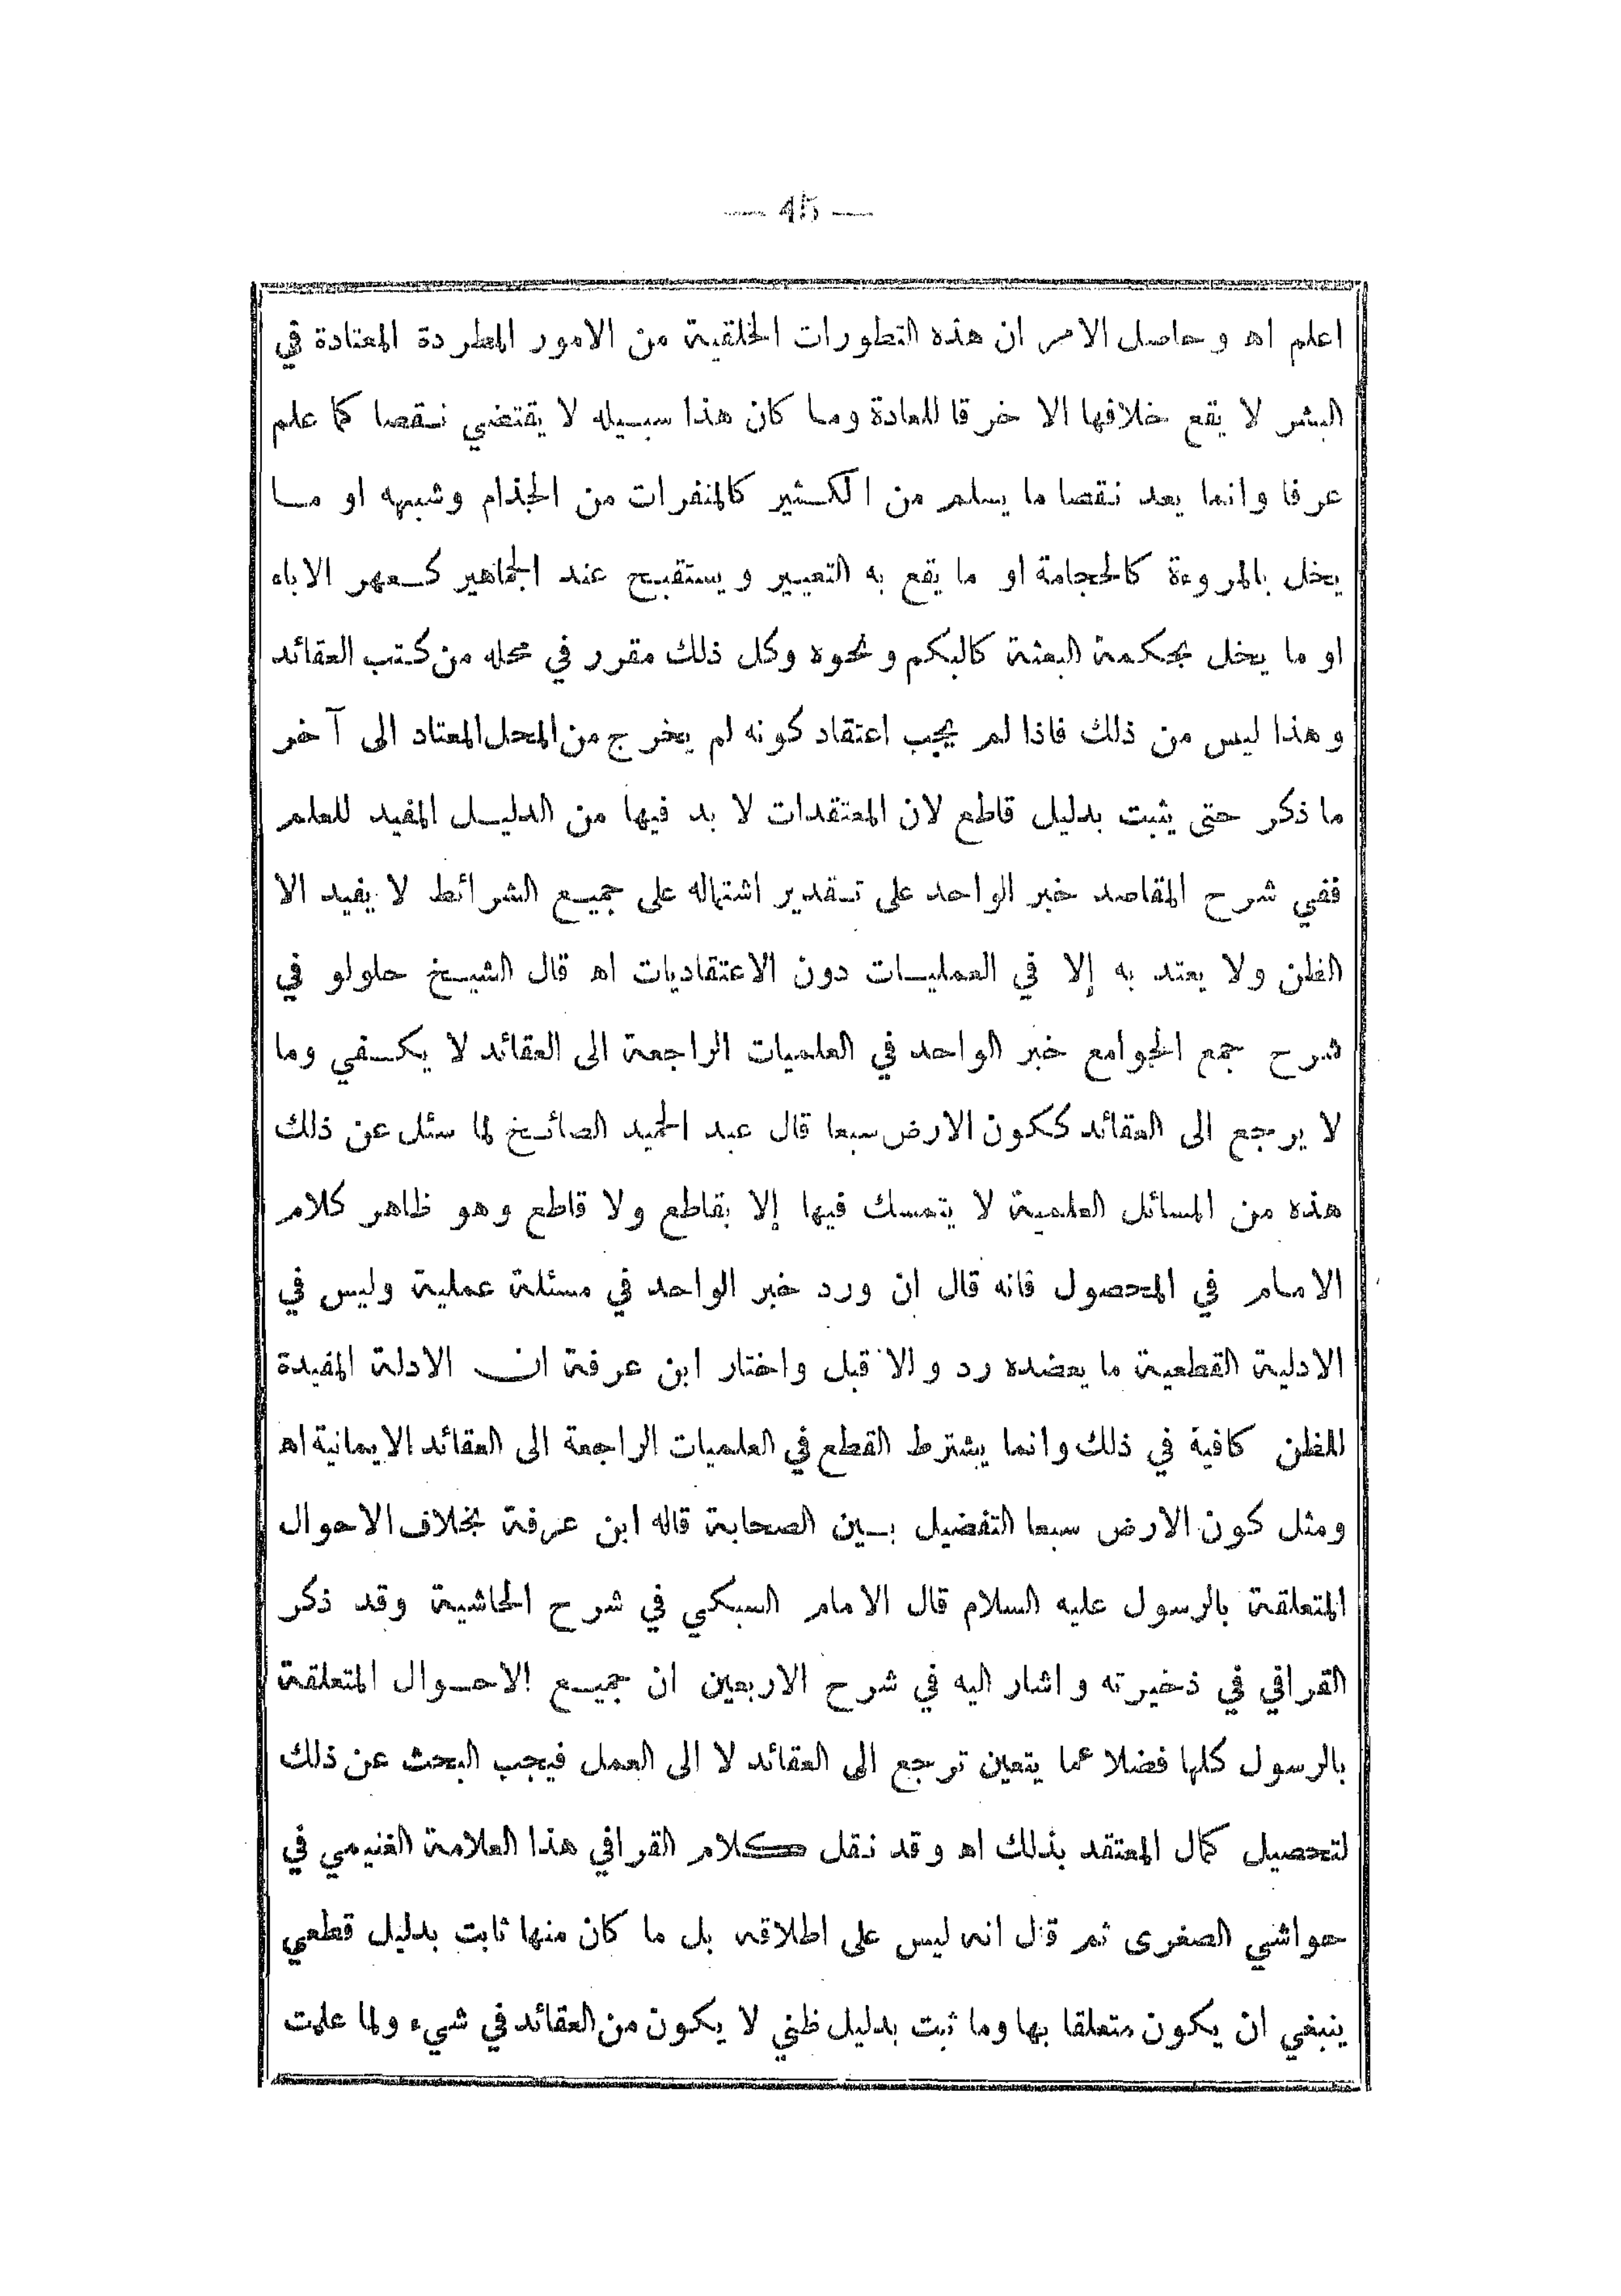 — 45 —
اعلم اه وحاصل الامر ان هذه التطورات الخلقية من الامور المطردة المعتادة في
البشر لا يقع خلافها الا خرقا للعادة وما كان هذا سبيله لا يقتضي نقصا كما علم
عرفا وانما يعد نقصا ما يسلم من الكثير كالمنفرات من الجذام وشبهه او ما
يخل بالمروءة كالحجامة او ما يقع به التعيير ويستقبح عند الجماهير كعهر الاباء
او ما يخل بحكمة البعثة كالبكم ونحوه وكل ذلك مقرر في محله من كتب العقائد
وهذا ليس من ذلك فاذا لم يجب اعتقاد كونه لم يخرج من المحل المعتاد الى آخر
ما ذكر حتى يثبت بدليل قاطع لان المعتقدات لا بد فيها من الدليل المفيد للعلم
ففي شرح المقاصد خبر الواحد على تقدير اشتماله على جميع الشرائط لا يفيد الا
الظن ولا يعتد به إلا في العمليات دون الاعتقاديات اه قال الشيخ حلولو في
شرح جمع الجوامع خبر الواحد في العلميات الراجعة الى العقائد لا يكفي وما
لا يرجع الى العقائد ككون الارض سبعا قال عبد الحميد الصائخ لما سئل عن ذلك
هذه من المسائل العلمية لا يتمسك فيها إلا بقاطع ولا قاطع وهو ظاهر كلام
الامام في المحصول فانه قال ان ورد خبر الواحد في مسئلة عملية وليس في
الادلية القطعية ما يعضده رد والا قبل واختار ابن عرفة ان الادلة المفيدة
للظن كافية في ذلك وانما يشترط القطع في العلميات الراجعة الى العقائد الايمانية اه
ومثل كون الارض سبعا التفضيل بين الصحابة قاله ابن عرفة بخلاف الاحوال
المتعلقة بالرسول عليه السلام قال الامام السبكي في شرح الحاشية وقد ذكر
القرافي في ذخيرته واشار اليه في شرح الاربعين ان جميع الاحوال المتعلقة
بالرسول كلها فضلا عما يتعين ترجع الى العقائد لا الى العمل فيجب البحث عن ذلك
لتحصيل كمال المعتقد بذلك اه وقد نقل كلام القرافي هذا العلامة الغنيمي في
حواشي الصغرى ثم قال انه ليس على اطلاقه بل ما كان منها ثابت بدليل قطعي
ينبغي ان يكون متعلقا بها وما ثبت بدليل ظني لا يكون من العقائد في شيء ولما علمت